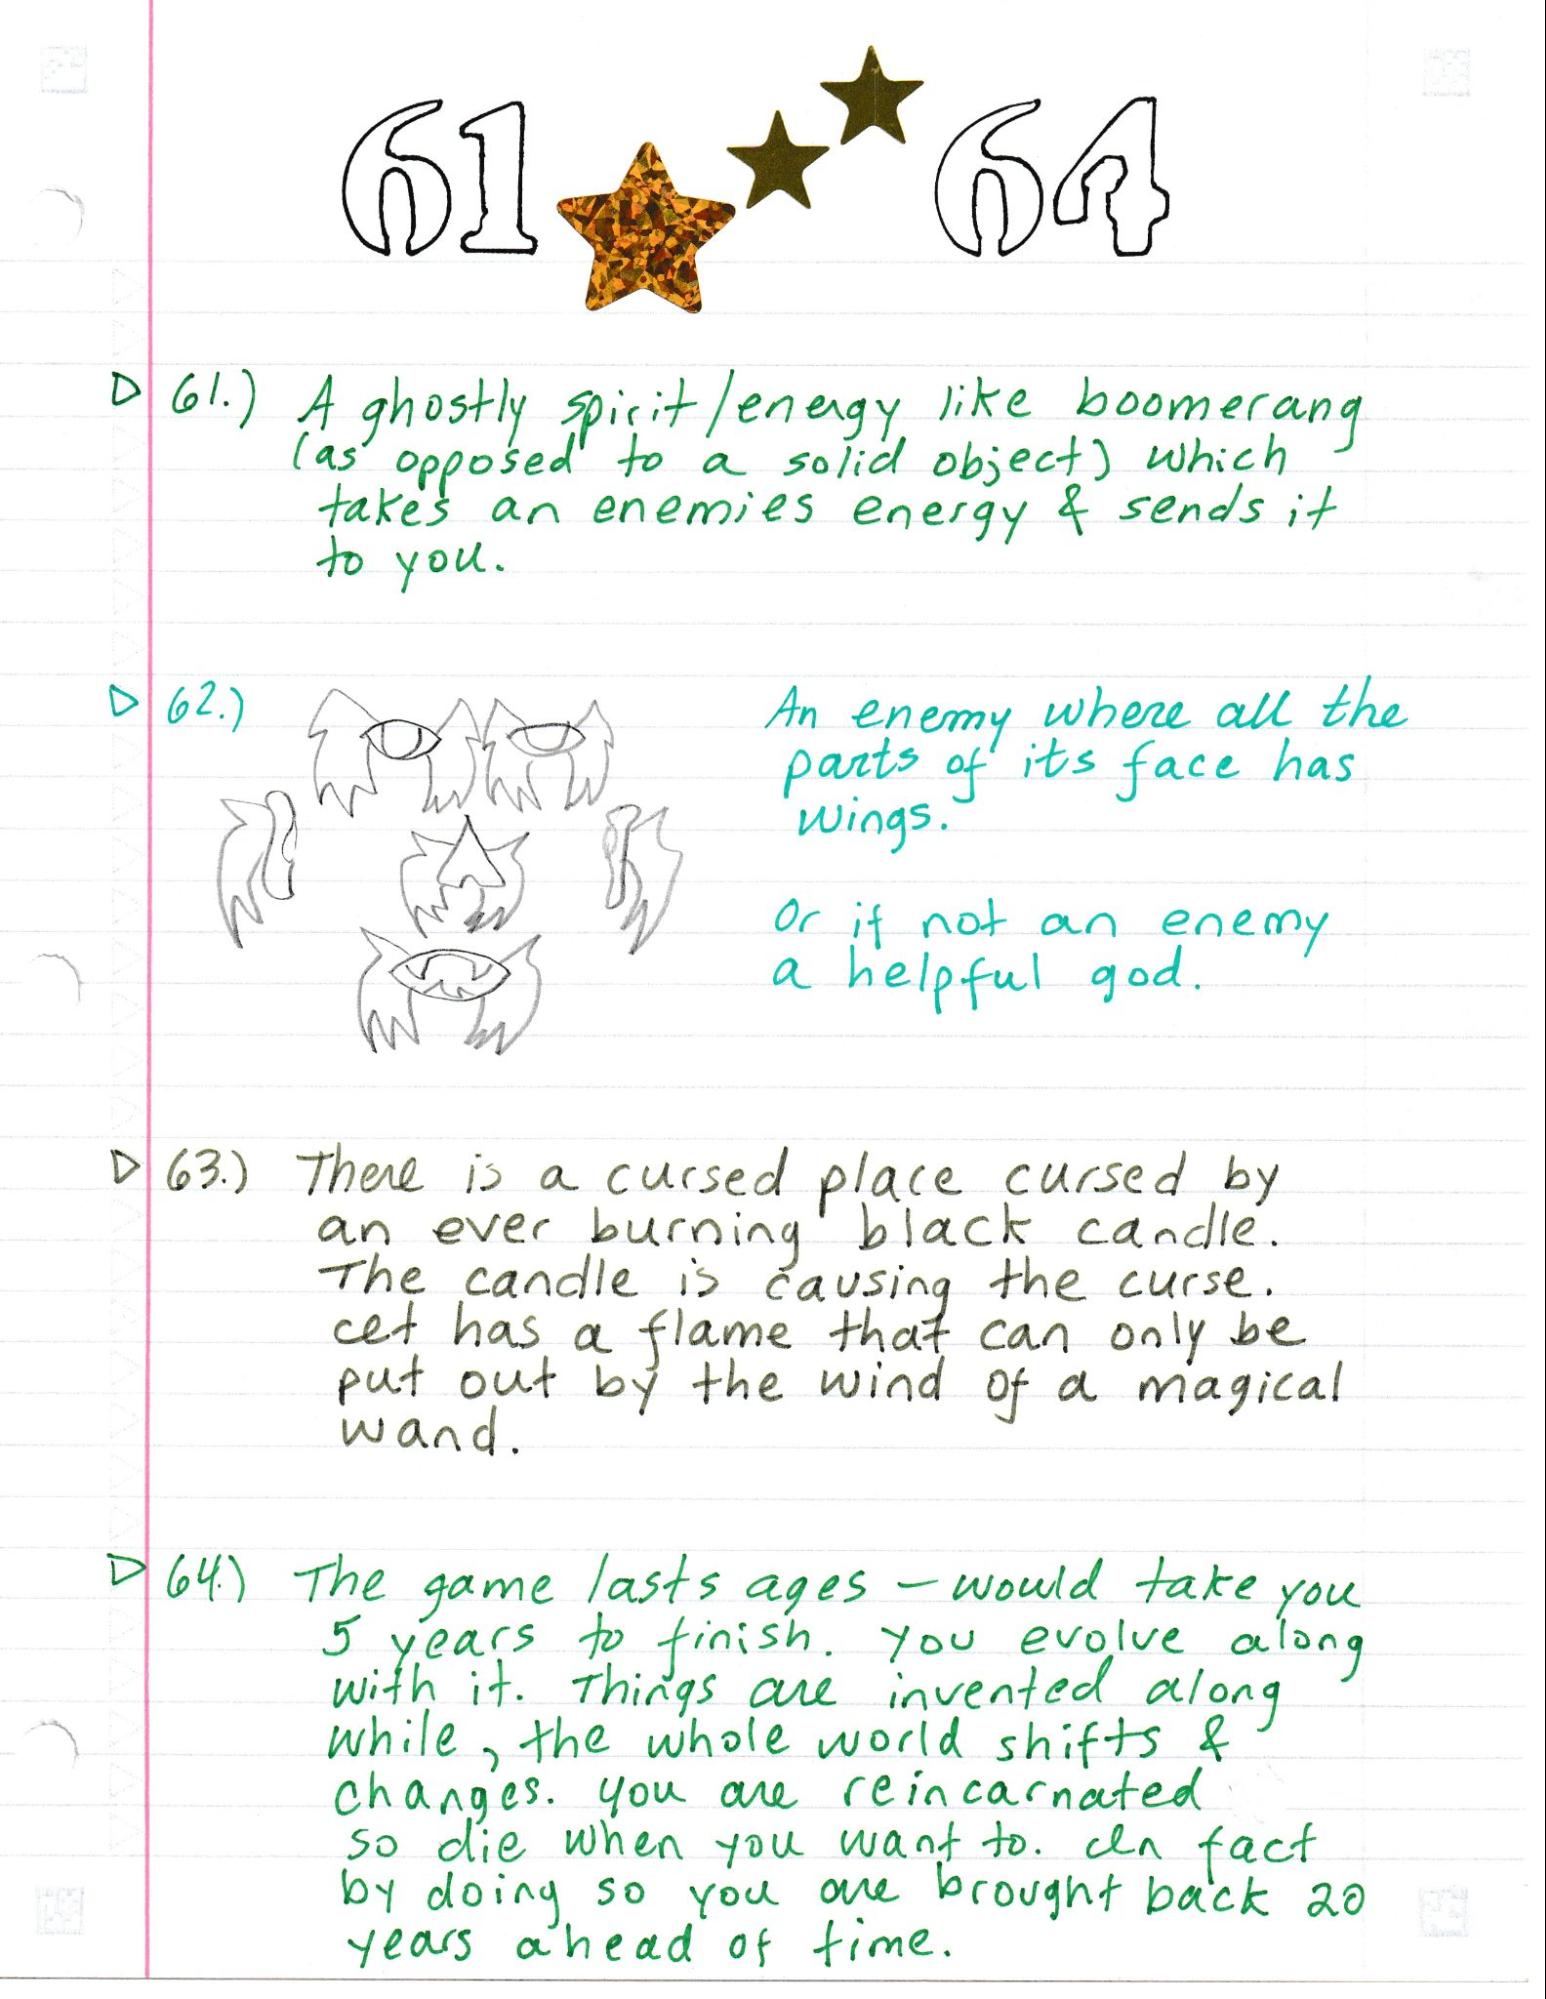 61 64
61.) A ghostly spirit/energy like boomerang
(as opposed to a solid object) which
takes an enemies energy & sends it
to you.
62.)
An enemy where all the
parts of its face has
wings.
Or if not an enemy
a helpful god.
63.) There is a cursed place cursed by
an ever burning black candle.
The candle is causing the curse.
It has a flame that can only be
put out by the wind of a magical
wand.
64.) The game lasts ages – would take you
5 years to finish. You evolve along
with it. Things are invented along
while, the whole world shifts &
changes. You are reincarnated
so die when you want to. In fact
by doing so you are brought back 20
years ahead of time.